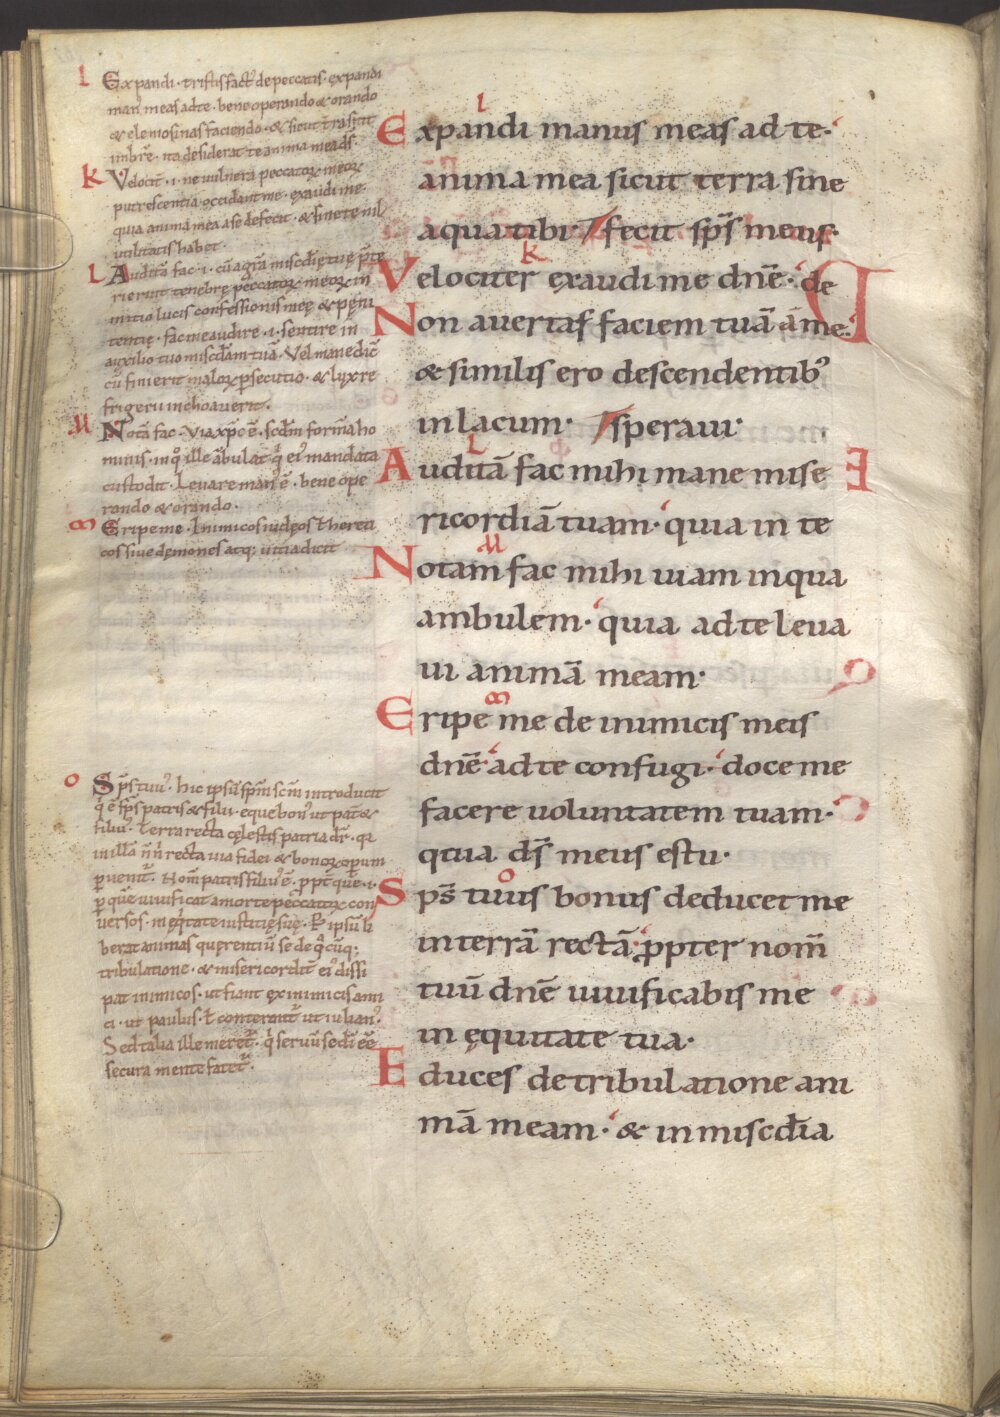 l Expandi · tristis fact᾽ de peccatis · expandi
man᾽ meas ad te · bene operando & orando
& elemosinas faciendo · & sicut t̄ra sitit
imbrē · ita desiderat te anima mea d̄s ·
k Velocit̄ · i · ne vulnera peccatoꝝ meoꝝ
putrescentia occidant me · exaudi me ·
quia anima mea a se defecit · & sine te nil
utilitatis habet ·
l Auditā fac · i · cū agrā misc̄dię tuę
rierint tenebrę peccatoꝝ meoꝝ in
initio lucis confessionis meę & pęni
tentię · fac me audire · i · sentire in
auxilio tuo misc̄dam tuā · Vel mane dic̄
cū finierit maloꝝ p̄secutio · & lux re
frigerii inchoaverit ·
M Notā fac · Via xp̄c ē · scdm̄ formā ho
minis · in q᾽ ille ābulat q᾽ ei᾽ mandata
custodit · Levare man᾽ ē · bene ope
rando & orando ·
m Eripe me · Inimicos iudęos t hereti
cos sive dęmones atq; vitia dicit
o Sp̄s tuu᾽ · hic ipsū sp̄m sc̄m introducit
q᾽ ē sp̄s patris & filii · eque bon᾽ ut pat̄ &
filiu᾽ · Terra recta cęlestis patria dr̄ · q̄a
in illā n̄ n᾽ recta via fidei & bonoꝝ opum
pvenit᾽ · Nom̄ patris filiu᾽ ē · ppt̄ quē · i ·
p quē vivificat a morte peccatoꝝ con
versos · in eq᾽tate iustitię suę · R ipsū li
berat animas querentiū se de q᾽cūq;
tribulatione · & misericordit̄ ei᾽ dissi
pat inimicos · ut fiant ex inimicis ami
ci · ut paulus · t conterant᾽ ut iulian᾽ ·
Sed talia ille meret᾽ · q᾽ servū se dī eē
secura mente fatet᾽ ·
l
Expandi manus meas ad te ·
anima mea sicut terra sine
aqua tibi · fecit sp̄s meus ·
k
Velociter exaudi me dnē · de
Non avertas faciem tuā ā me ·
& similis ero descendentib᾽
in lacum · speravi ·
l
Auditā fac mihi mane mise
ricordiā tuam · quia in te
M
Notam fac mihi viam in qua
ambulem · quia ad te leva
vi animā meam ·
m
Eripe me de inimicis meis
dnē ad te confugi · doce me
facere voluntatem tuam ·
q tua ds̄ meus es tu ·
o
Sp̄s tuus bonus deducet me
in terrā rectā · ppter nom̄
tuū dnē vivificabis me
in ęquitate tua ·
Educes de tribulatione ani
mā meam · & in misc̄dia